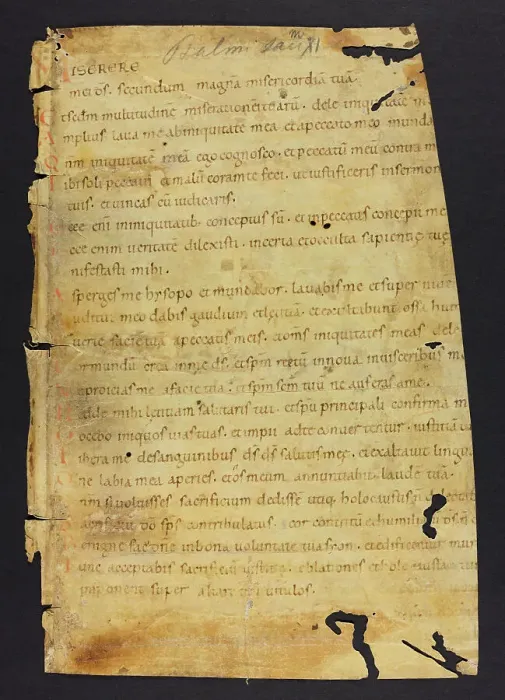 Psalmi
ISERERE
mei ds. secundum magnā misericordiā tuā.
tscdm multitudinē miserationū tuarū. dele iniquitatē m
mplius laua me abiniquitate mea et apeccato meo munda
nm iniquitatē meā ego cognosco. et peccatū meū contra m
ibi soli peccaui et malū corā te feci. ut iustificeris in sermon
tuis. et uincas cū iudicaris.
cce eni in iniquitatib. conceptus sū. et in peccatis concepit me
cce enim ueritatē dilexisti. incerta et occulta sapientię tuę
nifestasti mihi.
sperges me hysopo et mundabor. lauabis me et super niue
uditui meo dabis gaudium et lętitiā. et exultabunt ossa hum
uerte faciē tuā a peccatis meis. et om̄s iniquitates meas dele
or mundū crea in me ds. et spm rectū innoua in uisceribus m
e proicias me a facie tua. et spm scm tuū ne auferas a me.
edde mihi lętitiam salutaris tui. et spū principali confirma m
ocebo iniquos uias tuas. et impii ad te conuertentur. iustitiā
ibera me de sanguinibus ds ds salutis meę. et exaltauit lingu
ne labia mea aperies. et os meum annuntiabit laudē tuā.
nm si uoluisses sacrificium dedissē utiq. holocaustis
do sps contribulatus. cor contritū et humiliatū ds n
enigne fac dne in bona uoluntate tua syon. et edificentur mur
unc acceptabis sacrificiū iustitię. oblationes et hol
imponent super altare tuū uitulos.